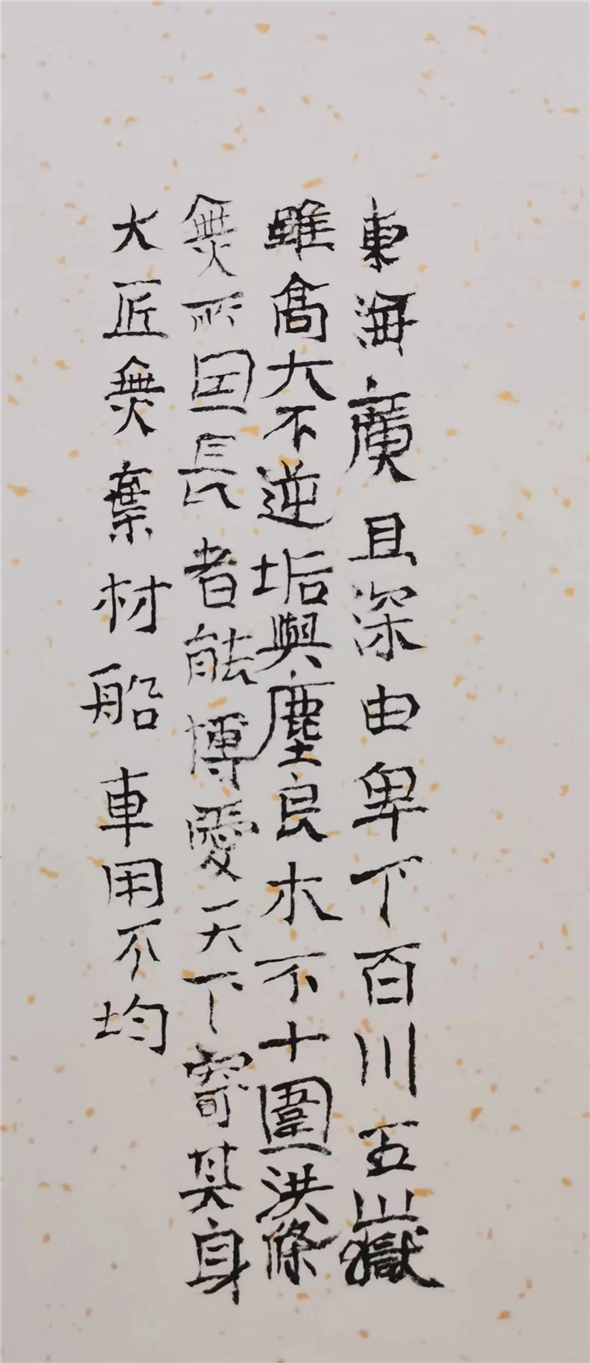 東海廣且深由卑下百川五嶽
雖高大不逆垢與塵良木不十圍洪條
無所因長者能博愛天下寄其身
大匠無棄材船車用不均